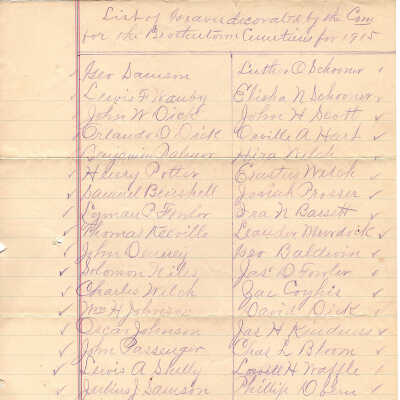 List of Graves decorated by the Com
for the Brothertown Cemeteries for 1915
Geo Samson
Luther O Schooner
Lewis F Wauby
Elisha N Schooner
John W Dick
John H Scott
Orlando D Dick
Orville A Hart
Benjamin Palmer
Hira Welch
Henry Potter
Erastus Welch
Samuel Bearskell
Josiah Prosser
Lyman P Fowler
Ira N Bassett
Thomas Keeville
Leander Murdock
John Denney
Geo Baldwin
Solomon Niles
Jas D Fowler
Charles Welch
Zac Coyhis
Wm H Johnson
David Dick
Oscar Johnson
Jas H Kindness
John Passenger
Chas L Bloom
Lewis A Shelly
Lowell H Waffle
Julius J Samson
Phillip